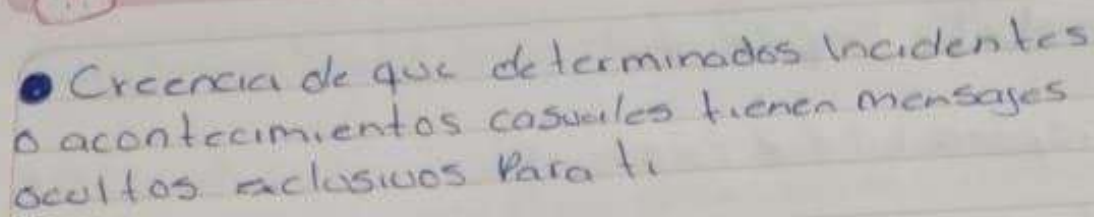 ● Creencia de que determinados incidentes
o acontecimientos casuales tienen mensajes
ocultos exclusivos Para ti